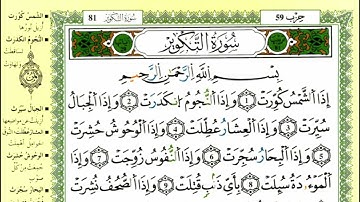 سورة التكوير 81 حزب 59
سُورَةُ التَّكْوِيرِ
بِسْمِ اللَّهِ الرَّحْمَٰنِ الرَّحِيمِ
إِذَا الشَّمْسُ كُوِّرَتْ ﴿1﴾ وَإِذَا النُّجُومُ انْكَدَرَتْ ﴿2﴾ وَإِذَا الْجِبَالُ
سُيِّرَتْ ﴿3﴾ وَإِذَا الْعِشَارُ عُطِّلَتْ ﴿4﴾ وَإِذَا الْوُحُوشُ حُشِرَتْ
﴿5﴾ وَإِذَا الْبِحَارُ سُجِّرَتْ ﴿6﴾ وَإِذَا النُّفُوسُ زُوِّجَتْ ﴿7﴾ وَإِذَا
الْمَوْءُودَةُ سُئِلَتْ ﴿8﴾ بِأَيِّ ذَنْبٍ قُتِلَتْ ﴿9﴾ وَإِذَا الصُّحُفُ نُشِرَتْ
الشمس كورت
النجوم انكدرت
تساقطت
الجبال سيرت
العشار عطلت
الوحوش حشرت
البحار سجرت